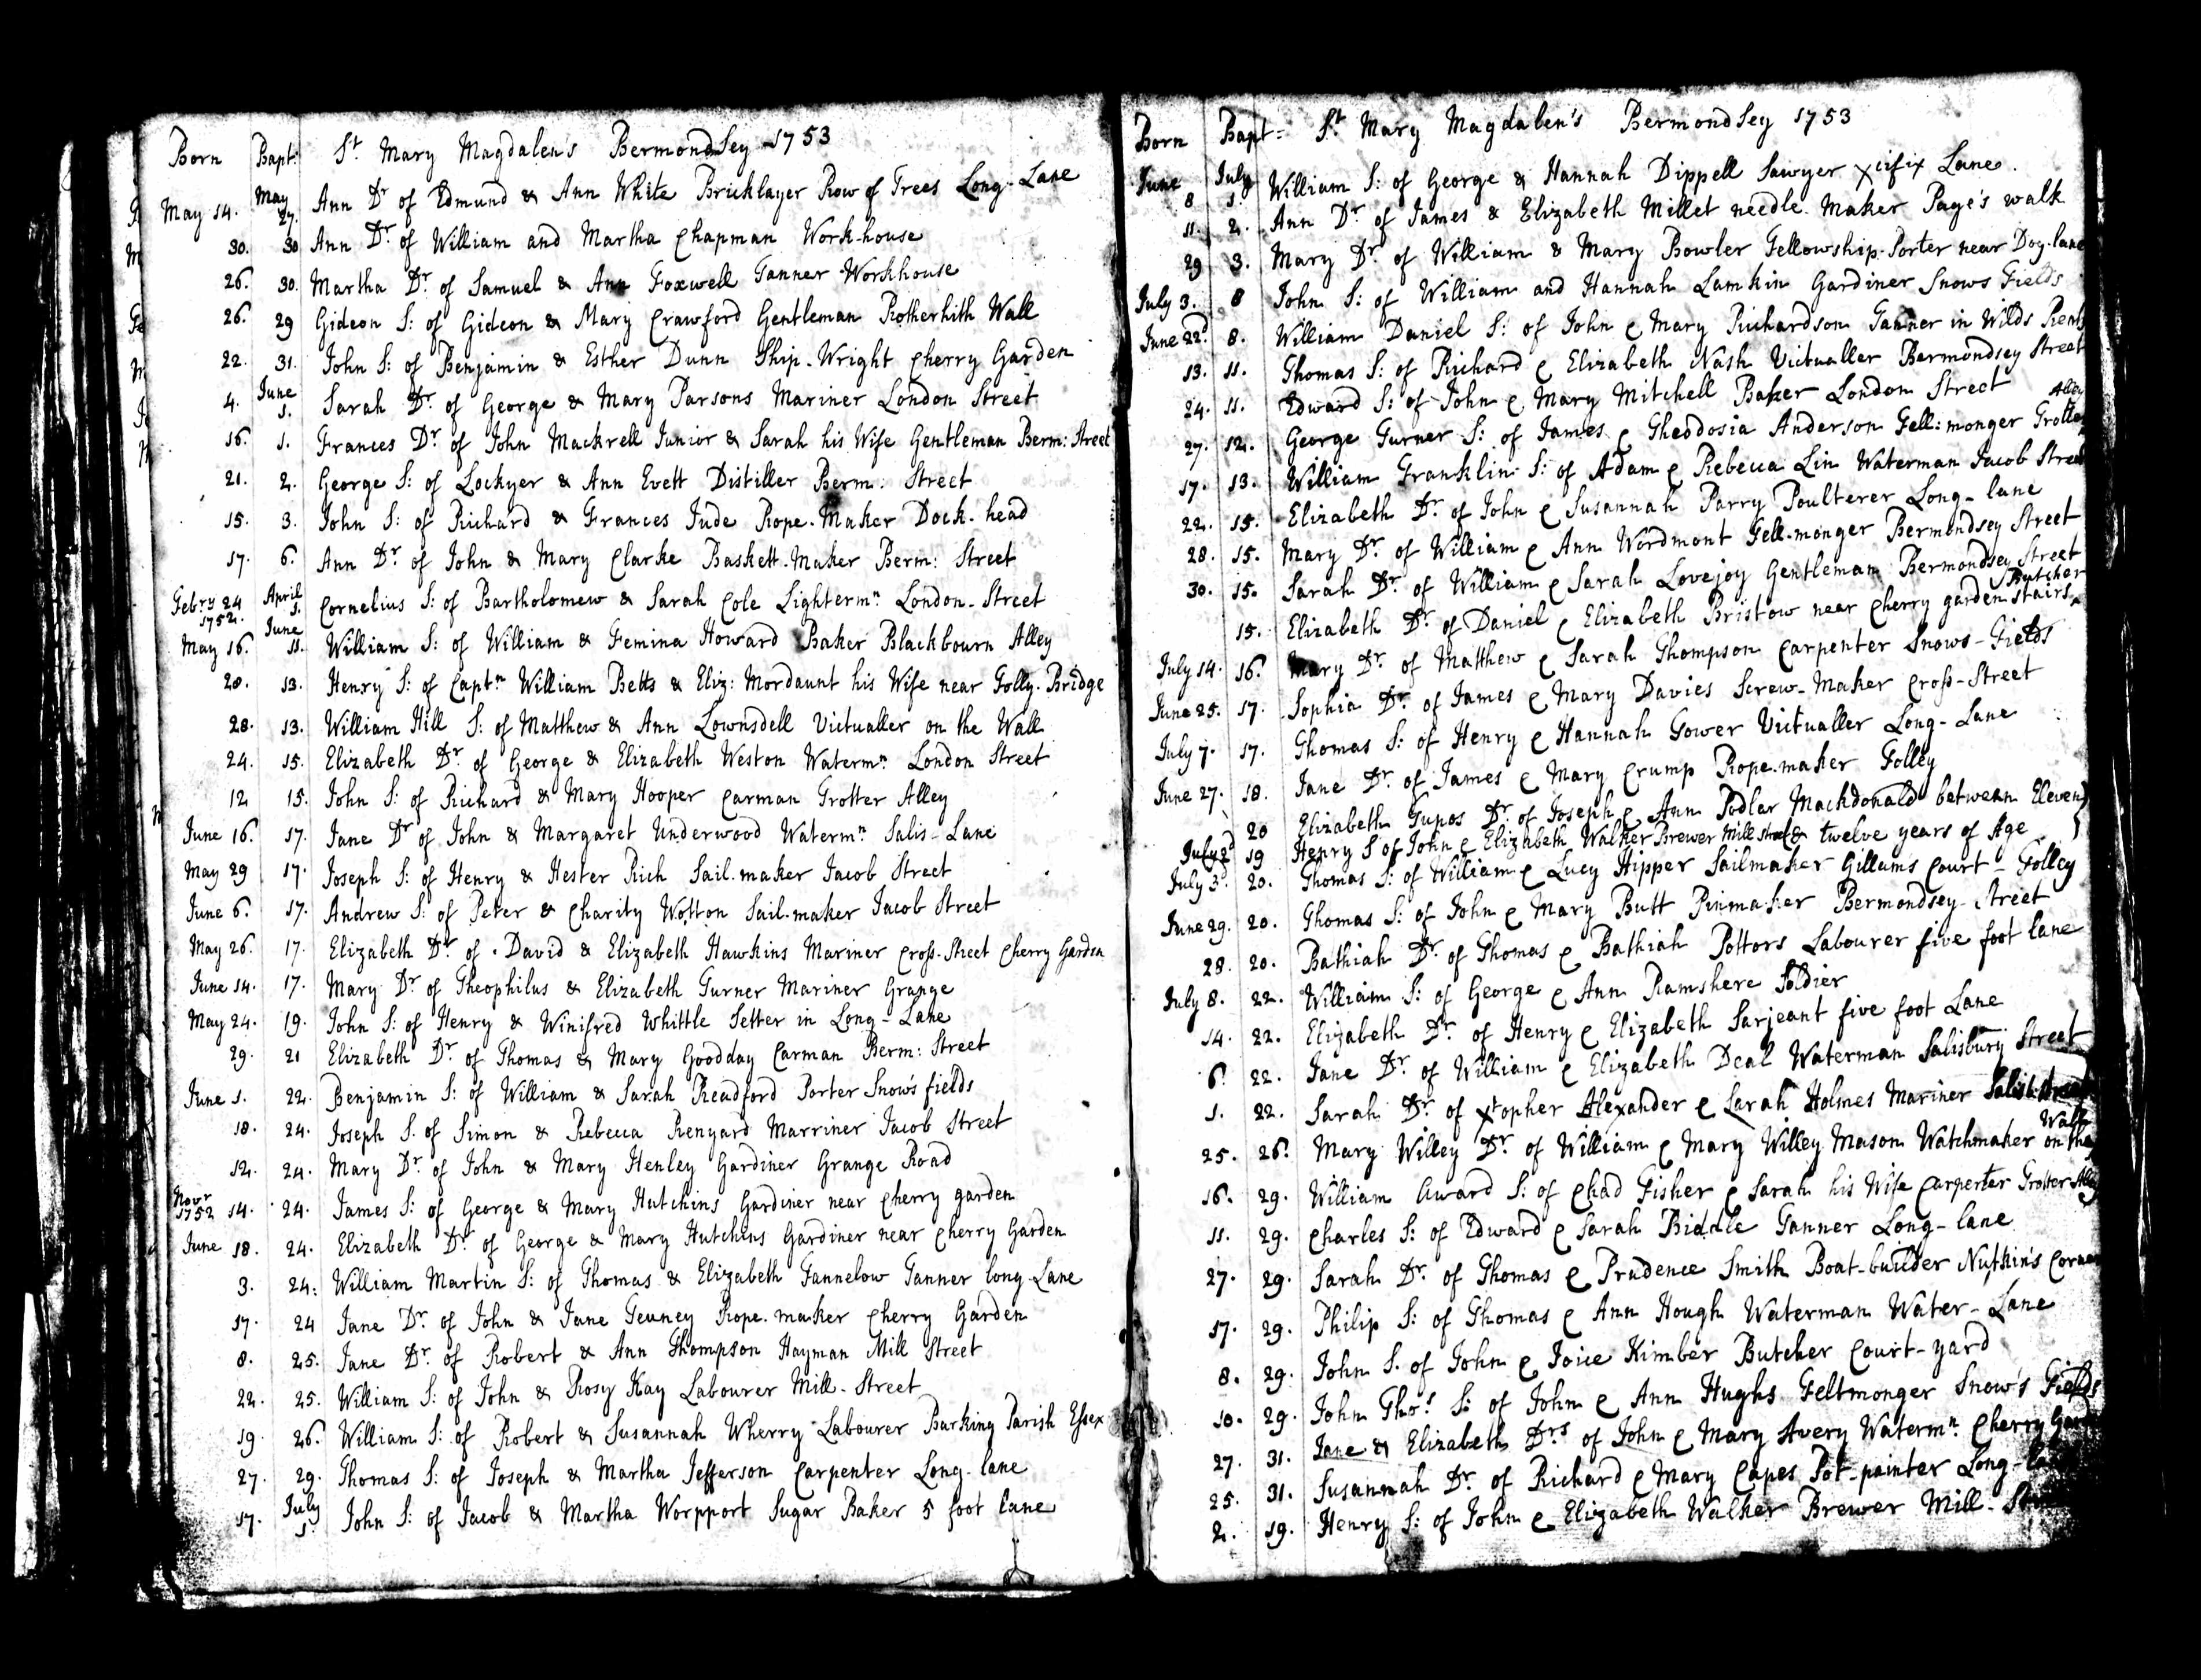 Born Bapt: St. Mary Magdalens Bermondsey 1753
May 14. May 27. Ann Dr of Edmund & Ann White Bricklayer Row of Trees Long-Lane
30. 30 Ann Dr. of William and Martha Chapman Work-house
26. 30. Martha Dr. of Samuel & Ann Foxwell Tanner Workhouse
26. 29 Gideon S: of Gideon & Mary Crawford Gentleman Rotherhith Wall
22. 31. John S: of Benjamin & Esther Dunn Ship-Wright Cherry Garden
4. June 1. Sarah Dr. of George & Mary Parsons Mariner London Street
16. 1. Frances Dr. of John Mackrell Junior & Sarah his Wife Gentleman Berm: Street
21. 2. George S: of Lockyer & Ann Evett Distiller Berm: Street
15. 3. John S: of Richard & Frances Jude Rope-Maker Dock-head
17. 6. Ann Dr. of John & Mary Clarke Baskett-Maker Berm: Street
Febry 24 1752. April 1. Cornelius S: of Bartholomew & Sarah Cole Lighterm.n London-Street
May 16. June 11. William S: of William & Femina Howard Baker Blackbourn Alley
20. 13. Henry S: of Captn William Betts & Eliz: Mordaunt his Wife near Folly-Bridge
28. 13. William Hill S: of Matthew & Ann Lownsdell Victualler on the Wall
24. 15. Elizabeth Dr. of George & Elizabeth Weston Waterm.n London Street
12 15. John S: of Richard & Mary Hooper Carman Trotter Alley
June 16. 17. Jane Dr of John & Margaret Underwood Waterm.n Salis-Lane
May 29 17. Joseph S: of Henry & Hester Rich Sail-maker Jacob Street
June 6. 17. Andrew S: of Peter & Charity Wotton Sail-maker Jacob Street
May 26. 17. Elizabeth Dr. of David & Elizabeth Hawkins Mariner Cross-Street Cherry Garden
June 14. 17. Mary Dr. of Theophilus & Elizabeth Turner Mariner Grange
May 24. 19. John S: of Henry & Winifred Whittle Setter in Long-Lane
29. 21 Elizabeth Dr. of Thomas & Mary Goodday Carman Berm: Street
June 1. 22. Benjamin S: of William & Sarah Readford Porter Snow's fields
18. 24. Joseph S. of Simon & Rebecca Renyard Marriner Jacob Street
12. 24. Mary Dr. of John & Mary Henley Gardiner Grange Road
Novr 1752 14. 24. James S: of George & Mary Hutchins Gardiner near Cherry garden
June 18. 24. Elizabeth Dr. of George & Mary Hutchins Gardiner near Cherry Garden
3. 24: William Martin S: of Thomas & Elizabeth Fannelow Tanner long Lane
17. 24 Jane Dr. of John & Jane Teuney Rope-maker Cherry Garden
8. 25. Jane Dr. of Robert & Ann Thompson Hayman Mill Street
22. 25. William S: of John & Rosy Kay Labourer Mill-Street
19 26. William S: of Robert & Susannah Wherry Labourer Barking Parish Essex
27. 29. Thomas S: of Joseph & Martha Jefferson Carpenter Long-lane
17. July 1. John S: of Jacob & Martha Worpport Sugar Baker 5 foot lane
Born Bapt= St. Mary Magdalen's Bermondsey 1753
June 8 July 1. William S: of George & Hannah Dippell Sawyer Xcifix Lane.
11. 2. Ann Dr. of James & Elizabeth Millet needle Maker Page's walk
29 3. Mary Dr. of William & Mary Bowler Fellowship-Porter near Dog-lane
July 3. 8 John S: of William and Hannah Lamkin Gardiner Snows Fields
June 22d. 8. William Daniel S: of John & Mary Richardson Tanner in Wilds Rents
13. 11. Thomas S: of Richard & Elizabeth Nash Victualler Bermondsey Street
24. 11. Edward S: of John & Mary Mitchell Baker London Street
27. 12. George Turner S: of James & Theodosia Anderson Fell:monger Trotter Alley
17. 13. William Franklin S: of Adam & Rebecca Lin Waterman Jacob Street
22. 15. Elizabeth Dr. of John & Susannah Parry Poulterer Long-lane
28. 15. Mary Dr. of William & Ann Wordmont Fell-monger Bermondsey Street
30. 15. Sarah Dr. of William & Sarah Lovejoy Gentleman Bermondsey Street
15. Elizabeth Dr. of Daniel & Elizabeth Bristow near Cherry garden Stairs Butcher
July 14. 16. Mary Dr. of Matthew & Sarah Thompson Carpenter Snows-Fields
June 25. 17. Sophia Dr. of James & Mary Davies Screw-Maker Cross-Street
July 7. 17. Thomas S: of Henry & Hannah Gower Victualler Long-Lane
June 27. 18. Jane Dr. of James & Mary Crump Rope-maker Folley
20 Elizabeth Tupos Dr. of Joseph & Ann Podlar Machdonald between Eleven
July 2d 19 Henry S of John & Elizabeth Walker Brewer Mill street & twelve years of Age
July 3d. 20. Thomas S: of William & Lucy Hipper Sailmaker Gillums Court-Folley
June 29. 20. Thomas S: of John & Mary Butt Pinmaker Bermondsey-Street
28. 20. Bathiah Dr. of Thomas & Bathiah Pottors Labourer five foot lane
July 8. 22. William S: of George & Ann Ramshere Soldier
14. 22. Elizabeth Dr. of Henry & Elizabeth Sarjeant five foot Lane
6. 22. Jane Dr. of William & Elizabeth Deal Waterman Salisbury Street
1. 22. Sarah Dr. of Xtopher Alexander & Sarah Holmes Mariner
25. 26. Mary Willey Dr. of William & Mary Willey Mason Watchmaker on the Wall
16. 29. William Award S: of Chad Fisher & Sarah his Wife Carpenter Trotter Alley
11. 29. Charles S: of Edward & Sarah Biddle Tanner Long-lane
27. 29. Sarah Dr. of Thomas & Prudence Smith Boat-builder Nutkin's Corner
17. 29. Philip S: of Thomas & Ann Hough Waterman Water-Lane
8. 29. John S. of John & Joice Kimber Butcher Court-yard
10. 29. John Thos. S: of John & Ann Hughs Feltmonger Snow's Fields
27. 31. Jane & Elizabeth Drs of John & Mary Avery Waterm.n Cherry
25. 31. Susannah Dr. of Richard & Mary Capes Pot-painter Long-
2. 19. Henry S: of John & Elizabeth Walker Brewer Mill-